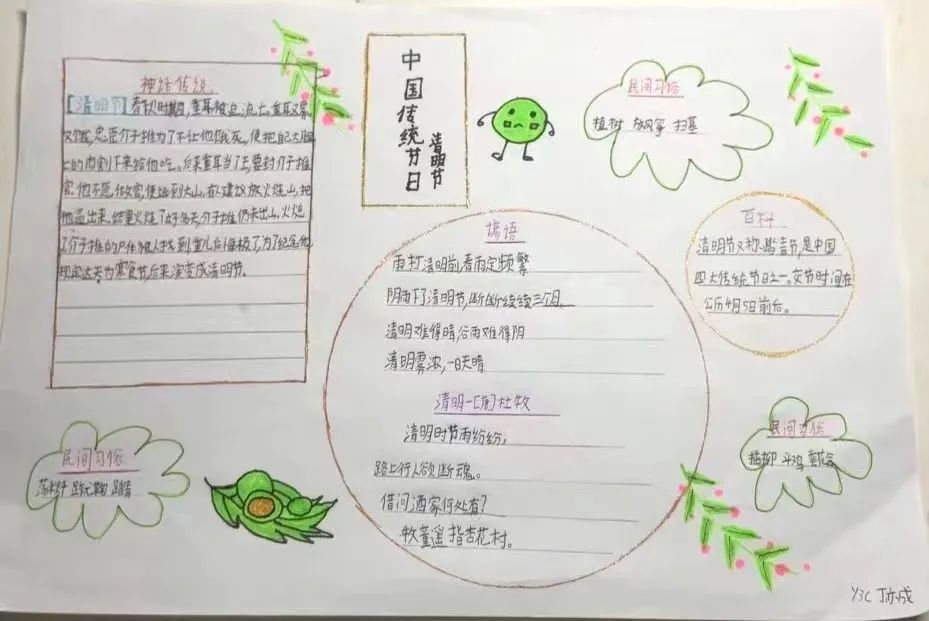 中国传统节日
清明节
神话传说
[清明节]春秋时期,重耳被迫流亡。重耳又累
又饿,忠臣介子推为了不让他饿死,便把自己大腿
上的肉割下来给他吃。后来重耳当了王要封介子推
官,他不愿做官,便逃到大山。有人建议放火烧山,把
他逼出来,结果火烧了好多天,介子推仍未出山。火熄
了介子推的尸体被人找到,重儿后悔极了,为了纪念他
规定这天为寒食节,后来演变成清明节。
民间习俗
植树 放风筝 扫墓
百科
清明节又称踏青节,是中国
四大传统节日之一。交节时间在
公历4月5日前后。
谚语
雨打清明前,春雨定频繁
阴雨下了清明节,断断续续三个月。
清明难得晴,谷雨难得阴
清明雾浓,一日天晴
清明-[唐]杜牧
清明时节雨纷纷,
路上行人欲断魂。
借问酒家何处有?
牧童遥指杏花村。
民间习俗
荡秋千 踏青
民间习俗
插柳 斗鸡
Y3C 丁亦成